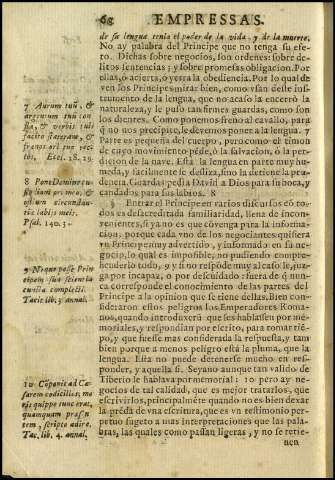 68 EMPRESSAS.
de su lengua tenia el poder de la vida, y de la muerte.
No ay palabra del Principe que no tenga su efe-
to. Dichas sobre negocios, son ordenes: sobre de-
litos sentencias; y sobre promesas obligacion. Por
ellas, ò acierta, o yerra la obediencia. Por lo qual de-
ven los Principes mirar bien, como vsan deste ins-
trumento de la lengua, que no acaso la encerrò la
naturaleza, y le puso tan firmes guardas, como son
los dientes. Como ponemos freno al cavallo, para
que no nos precipite, le devemos poner a la lengua. 7
Parte es pequeña del cuerpo, pero como el timon
de cuyo movimiento pède, ò la salvacion, ò la per-
dicion de la nave. Està la lengua en parte muy hu-
meda, y facilmente se desliza, sino la detiene la pru-
dencia. Guardas pedia David a Dios para su boca, y
candados para sus labios. 8
Entrar el Principe en varios discursos cō to-
dos es desacreditada familiaridad, llena de incon-
venientes, si ya no es que cōvenga para la informa-
cion, porque cada vno de los negociantes quisiera
vn Principe muy advertido, y informado en su ne-
gocio, lo qual es impossible, no pudiendo compre-
henderlo todo, y si no responde muy al caso le juz-
ga por incapaz, o por descuidado: fuera de q̃ nun-
ca corresponde el conocimiento de las partes del
Principe a la opinion que se tiene dellas. Bien consi-
deraron estos peligros los Emperadores Roma-
nos, quando introduxerō que les hablassen por me-
moriales, y respondian por escrito, para tomar tiē-
po, y que fuesse mas considerada la respuesta, y tam
bien porque a menos peligro està la pluma, que la
lengua. Esta no puede detenerse mucho en res-
ponder, y aquella si. Seyano aunque tan valido de
Tiberio le hablava por memorial: 10 pero ay ne-
gocios de tal calidad, que es mejor tratarlos, que
escrivirlos, principalmēte quando no es bien dexar
la prēda de vna escritura, que es vn testimonio per-
petuo sugeto a mas interpretaciones que las pala-
bras, las quales como passan ligeras, y no se retie-
nen
7 Aurum tuū, &
argentum tuū con
fla, & verbis tuis
facito stateram, &
frænos ori tuo rec
tos. Eccl. 28. 29.
8 Pone Domine cu-
stodiam ori meo, &
ostium circunstan-
tiæ labijs meis.
Psal. 140. 3.
9 Neque posse Prin
cipem sua scientia
cuncta complecti.
Tac. lib. 3. annal.
10 Componit ad Cæ
sarem codicillos, mo
ris quippe tunc erat,
quamquam præsen
tem, scripto adire.
Tac. lib. 4. annal.